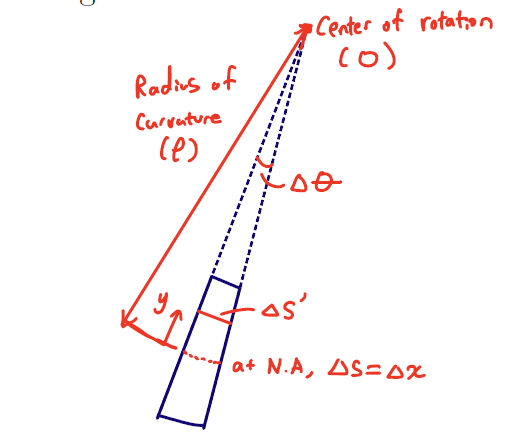 Center of rotation
(O)
Radius of
Curvature
(ρ)
Δθ
y
ΔS'
at N.A, ΔS=Δx